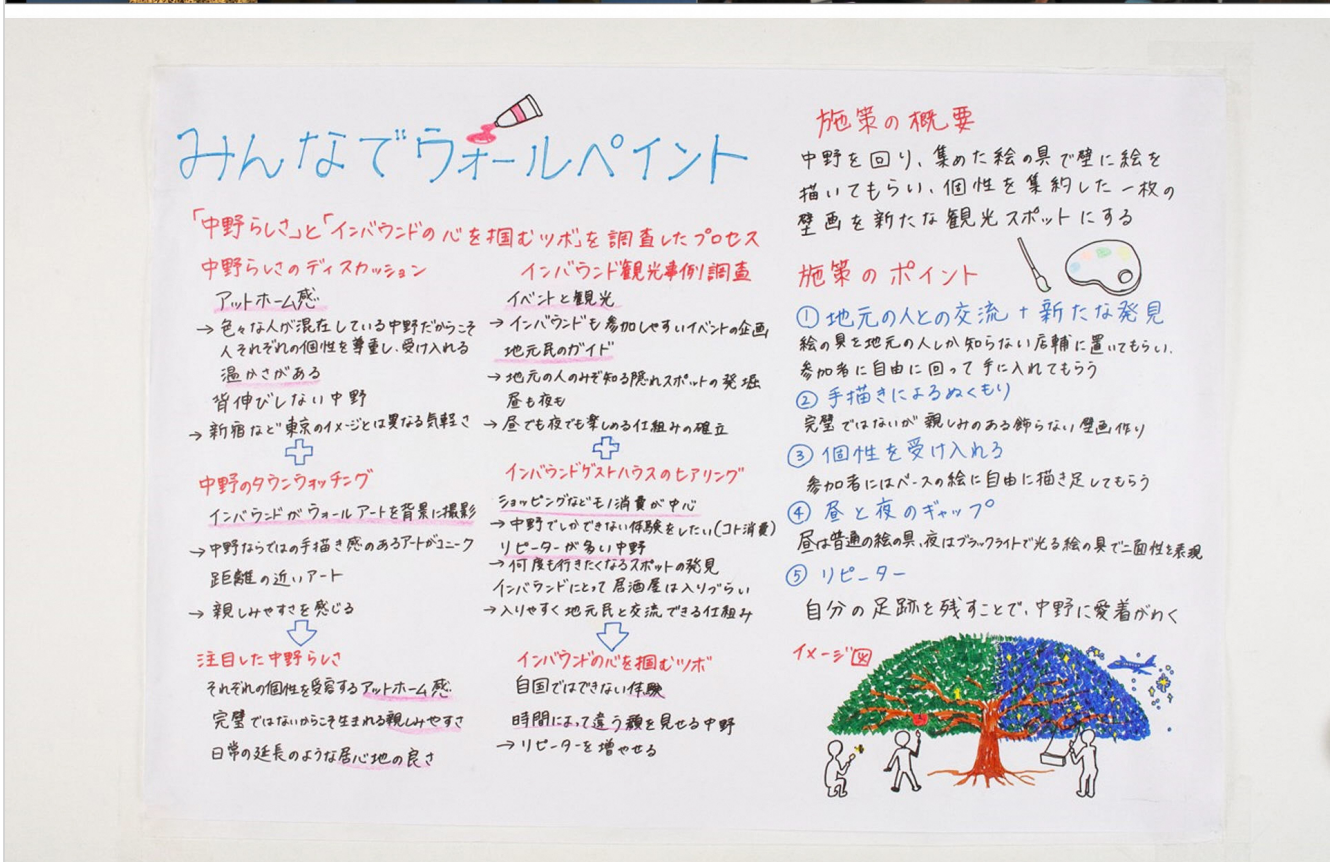 みんなでウォールペイント
「中野らしさ」と「インバウンドの心を掴むツボ」を調査したプロセス
中野らしさのディスカッション
アットホーム感
→ 色々な人が混在している中野だからこそ
人それぞれの個性を尊重し、受け入れる
温かさがある
背伸びしない中野
→ 新宿など東京のイメージとは異なる気軽さ
中野のタウンウォッチング
インバウンドがウォールアートを背景に撮影
→ 中野ならではの手描き感のあるアートがユニーク
距離の近いアート
→ 親しみやすさを感じる
注目した中野らしさ
それぞれの個性を受容するアットホーム感
完璧ではないからこそ生まれる親しみやすさ
日常の延長のような居心地の良さ
インバウンド観光事例調査
イベントと観光
→ インバウンドも参加しやすいイベントの企画
地元民のガイド
→ 地元の人のみぞ知る隠れスポットの発掘
昼も夜も
→ 昼でも夜でも楽しめる仕組みの確立
インバウンドゲストハウスのヒアリング
ショッピングなどモノ消費が中心
→ 中野でしかできない体験をしたい(コト消費)
リピーターが多い中野
→ 何度も行きたくなるスポットの発見
インバウンドにとって居酒屋は入りづらい
→ 入りやすく地元民と交流できる仕組み
インバウンドの心を掴むツボ
自国ではできない体験
時間によって違う顔を見せる中野
→ リピーターを増やせる
施策の概要
中野を回り、集めた絵の具で壁に絵を
描いてもらい、個性を集約した一枚の
壁画を新たな観光スポットにする
施策のポイント
① 地元の人との交流 + 新たな発見
絵の具を地元の人しか知らない店舗に置いてもらい、
参加者に自由に回って手に入れてもらう
② 手描きによるぬくもり
完璧ではないが親しみのある飾らない壁画作り
③ 個性を受け入れる
参加者にはベースの絵に自由に描き足してもらう
④ 昼と夜のギャップ
昼は普通の絵の具、夜はブラックライトで光る絵の具で二面性を表現
⑤ リピーター
自分の足跡を残すことで、中野に愛着がわく
イメージ図